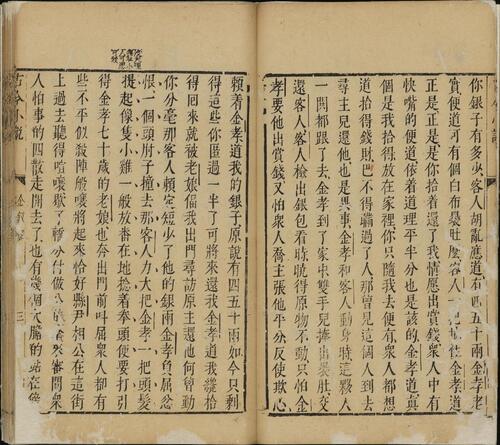 你銀子有多少客人胡亂應道有四五十兩金孝老
實便道可有個白布裹肚麼客人一把扯住金孝道
正是正是是你拾着還了我情願出賞錢衆人中有
快嘴的便道依着道理平半分也是該的金孝道真
個是我拾得放在家裡你只隨我去便有衆人都想
道拾得錢財巴不得瞞過了人那曾見這個人到去
尋主兒還他也是異事金孝和客人動身時這夥人
一閧都跟了去金孝到了家中雙手兒捧出裹肚交
還客人客人檢出銀包看時曉得原物不動只怕金
孝要他出賞錢又怕衆人喬主張他平分反使欺心
賴着金孝道我的銀子原說有四五十兩如今只剩
得這些你匿過一半了可將來還我金孝道我纔拾
得回來就被老娘偪我出門尋訪原主還他何曾動
你分毫那客人賴定短少了他的銀兩金孝負屈忿
恨一個頭肘子撞去那客人力大把金孝一把頭髮
提起像隻小雞一般放番在地捻着拳頭便要打引
得金孝七十歲的老娘也奔出門前叫屈衆人都有
些不平似殺陣般嚷將起來恰好縣尹相公在這街
上過去聽得喧嚷歇了轎分付做公的拿來審問衆
人怕事的四散走開去了也有幾個大膽的站在傍
古今小說
三